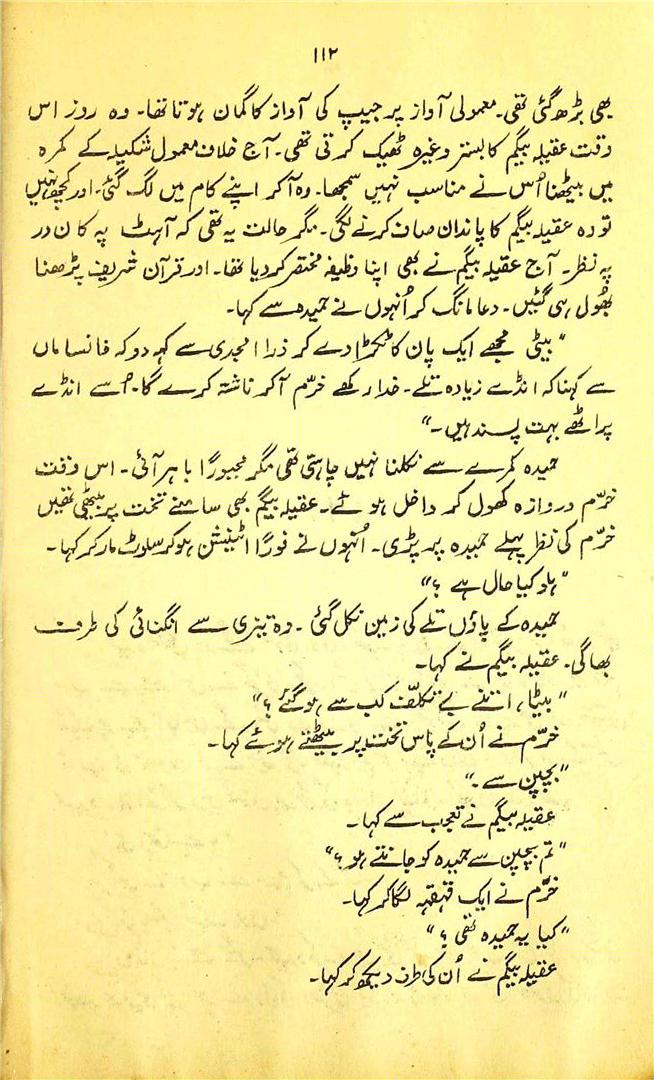 ۱۱۲
بھی بڑھ گئی تھی۔ معمولی آواز پر جیپ کی آواز کا گمان ہوتا تھا۔ وہ روز اس
وقت عقیلہ بیگم کا بستر وغیرہ ٹھیک کرتی تھی۔ آج خلاف معمول شکیلہ کے کمرہ
میں بیٹھنا اُس نے مناسب نہیں سمجھا۔ وہ آکر اپنے کام میں لگ گئی۔ اور کچھ نہیں
تو وہ عقیلہ بیگم کا پاندان صاف کرنے لگی۔ مگر حالت یہ تھی کہ آہٹ پہ کان در
پہ نظر۔ آج عقیلہ بیگم نے بھی اپنا وظیفہ مختصر کر دیا تھا۔ اور قرآن شریف پڑھنا
بھُول ہی گئیں۔ دعا مانگ کر اُنہوں نے حمیدہ سے کہا۔
”بیٹی مجھے ایک پان کا ٹکڑا دے کر ذرا امجدی سے کہہ دو کہ خانساماں
سے کہنا کہ انڈے زیادہ تلے۔ خدا رکھے خرّم آکر ناشتہ کرے گا۔ اُسے انڈے
پراٹھے بہت پسند ہیں۔“
حمیدہ کمرے سے نکلنا نہیں چاہتی تھی مگر مجبوراً باہر آئی۔ اس وقت
خرّم دروازہ کھول کر داخل ہوئے۔ عقیلہ بیگم بھی سامنے تخت پر بیٹھی تھیں
خرّم کی نظر پہلے حمیدہ پہ پڑی۔ اُنہوں نے فوراً اٹینشن ہو کر سلوٹ مار کر کہا۔
”ہاد کیا حال ہے ؟“
حمیدہ کے پاؤں تلے کی زمین نکل گئی۔ وہ تیزی سے انگنائی کی طرف
بھاگی۔ عقیلہ بیگم نے کہا۔
”بیٹا، اتنے بے تکلّف کب سے ہو گئے ؟“
خرّم نے اُن کے پاس تخت پر بیٹھتے ہوئے کہا۔
”بچپن سے۔“
عقیلہ بیگم نے تعجب سے کہا۔
”تم بچپن سے حمیدہ کو جانتے ہو ؟“
خرّم نے ایک قہقہہ لگا کر کہا۔
”کیا یہ حمیدہ تھی ؟“
عقیلہ بیگم نے اُن کی طرف دیکھ کر کہا۔